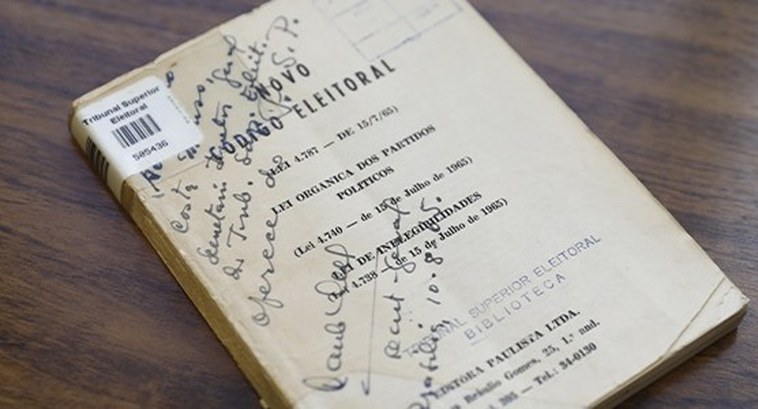 Tribunal Superior
Eleitoral
505436
NOVO
CÓDIGO ELEITORAL
LEI 4.787 — DE 15/7/65)
LEI ORGÂNICA DOS PARTIDOS
POLITICOS
(Lei 4.740 — de 15 de Julho de 1965)
LEI DE INELEGIBILIDADES
(Lei 4.738 — de 15 de Julho de 1965)
TRIBUNAL SUPERIOR ELEITORAL
BIBLIOTECA
EDITORA PAULISTA LTDA.
Rebello Gomes, 25, 1.º and.
— Tel.: 34-0130
Costa
Secretário Diretor Geral
do Trib. Sup. Eleit.
oferece
Brasília, 10.8.65.